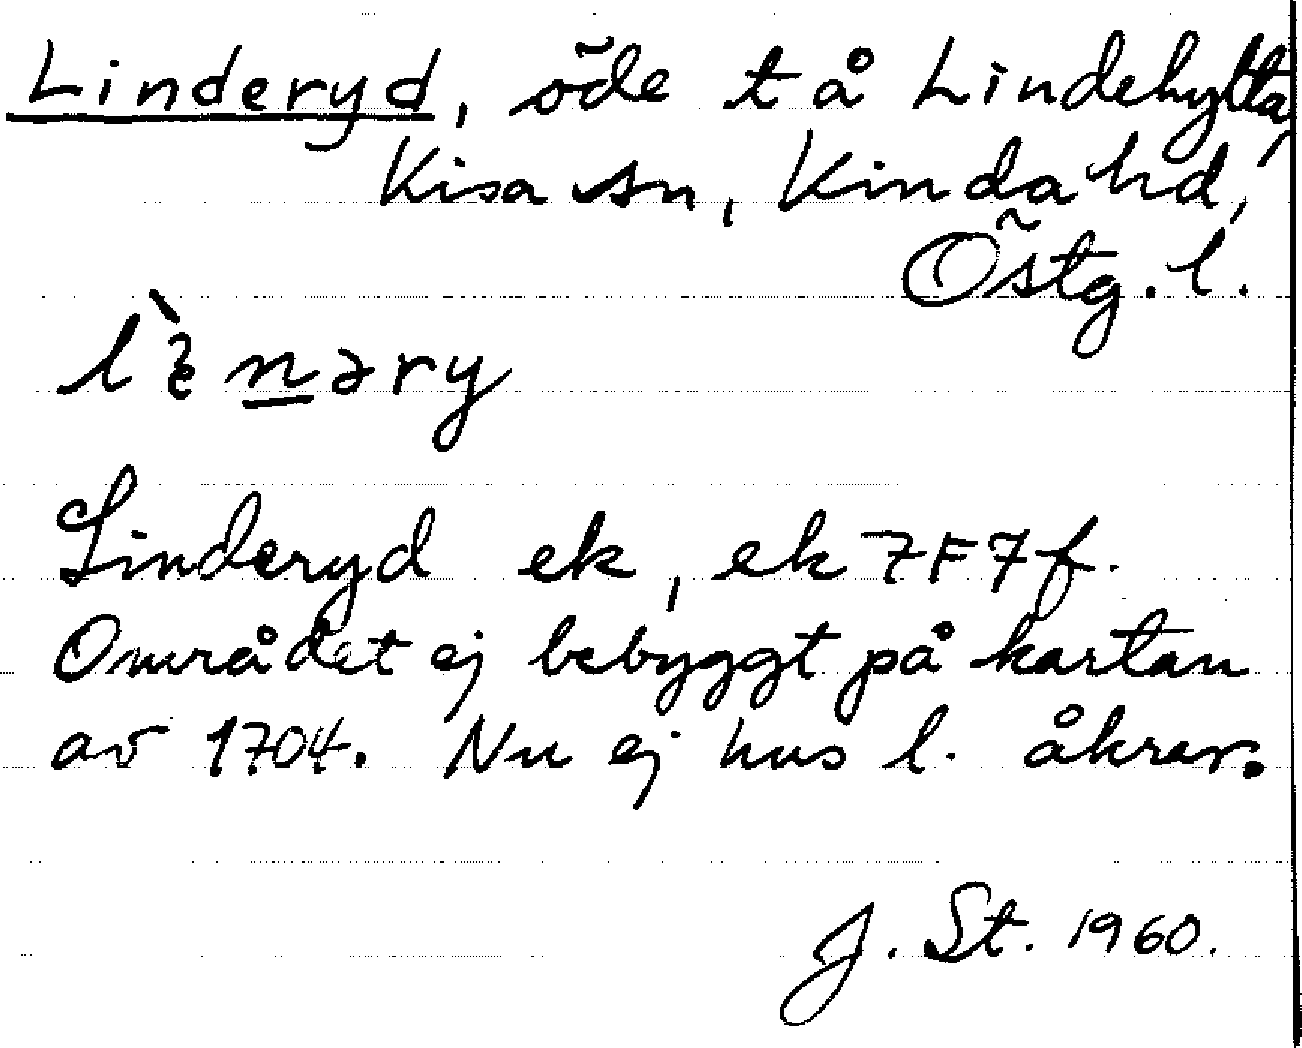 Linderyd, öde t å Lindehytta,
Kisa sn, Kinda hd,
Östg. l.
Linderyd ek, ek 7F7f.
Området ej bebyggt på kartan
av 1704. Nu ej hus l. åkrar.
J. St. 1960.